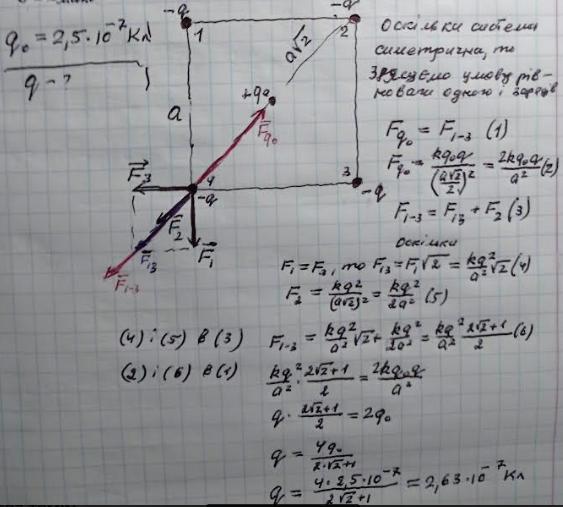 q₀ = 2,5·10⁻⁷ Кл
q - ?
-q
1
-q
2
a√2
a
+q₀
F⃗q₀
F⃗₃
4
-q
F⃗₂
F⃗₁₃
F⃗₁
F⃗₁₋₃
3
-q
Оскільки система
симетрична, то
умову рів-
новаги одного і зарядів
Fq₀ = F₁₋₃ (1)
Fq₀ = kq₀q/(a√2/2)² = 2kq₀q/a² (2)
F₁₋₃ = F₁₃ + F₂ (3)
Оскільки
F₁ = F₃, то F₁₃ = F₁√2 = kq²/a² √2 (4)
F₂ = kq²/(a√2)² = kq²/2a² (5)
(4) і (5) в (3)
F₁₋₃ = kq²/a² √2 + kq²/2a² = kq²/a² · 2√2+1/2 (6)
(2) і (6) в (1)
kq²/a² · 2√2+1/2 = 2kq₀q/a²
q · 2√2+1/2 = 2q₀
q = 4q₀/2·√2+1
q = 4·2,5·10⁻⁷/2√2+1 = 2,63·10⁻⁷ Кл